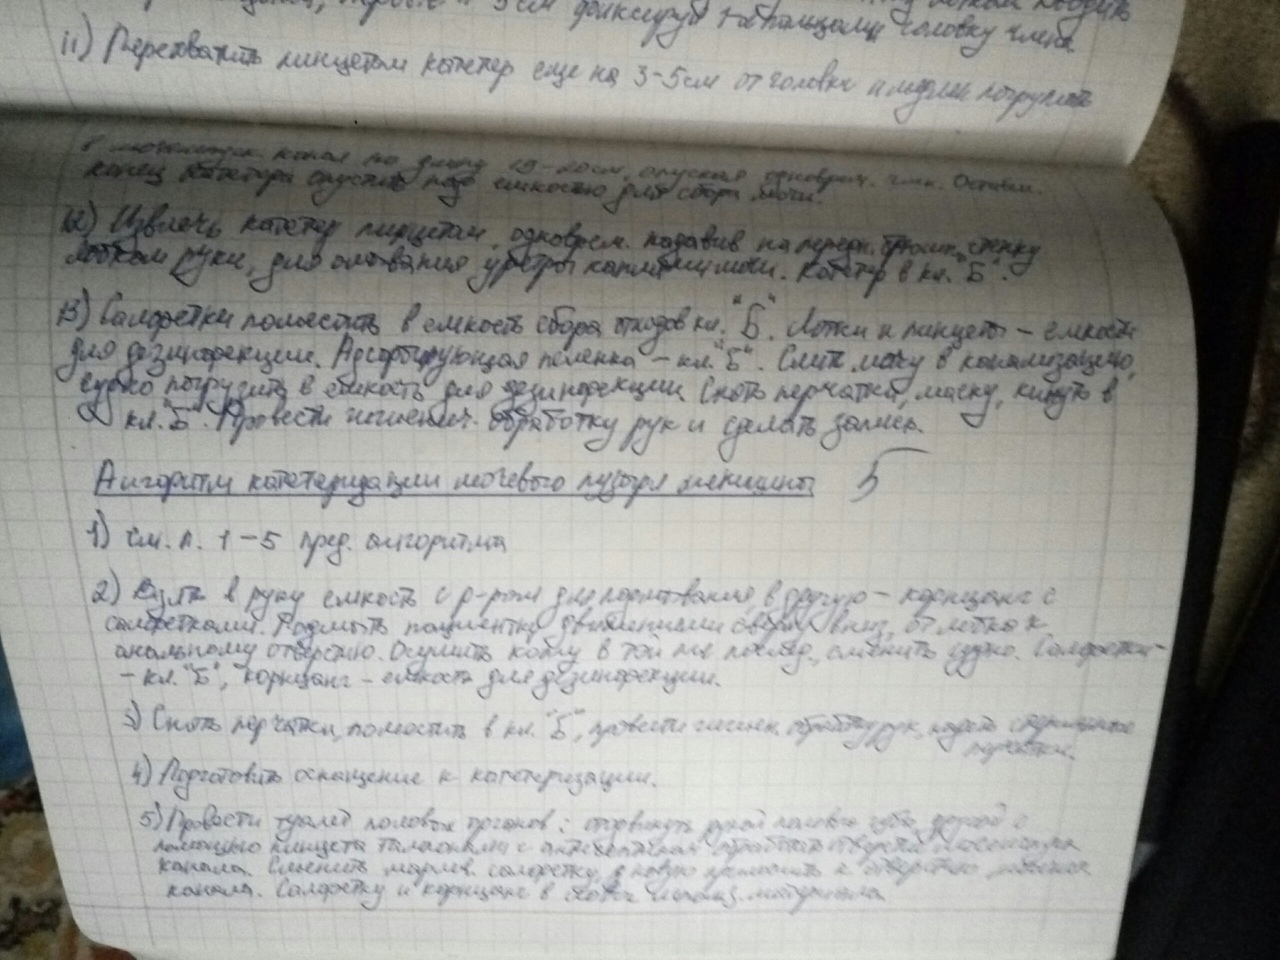 и 3 см фиксируя головку члена
11) Перехватить пинцетом катетер еще на 3-5см от головки и медлен. погрузить
в мочеиспуск. канал на длину 19-20см, опуская одноврем. член. Оставш.
конец катетера опустить над емкостью для сбора мочи.
12) Извлечь катетер пинцетом, одноврем. надавив на передн. брюшн. стенку
лобком руки, для омывания уретры каплями мочи. Катетер в кл. "Б".
13) Салфетки поместить в емкость сбора отходов кл. "Б". Лотки и пинцеты - емкость
для дезинфекции. Адсорбирующая пеленка - кл. "Б". Слить мочу в канализацию,
судно погрузить в емкость для дезинфекции. Снять перчатки, маску, кинуть в
кл. "Б". Провести гигиенич. обработку рук и сделать запись.
Алгоритм катетеризации мочевого пузыря женщины 5
1) см. п. 1-5 пред. алгоритма
2) Взять в руку емкость с р-ром для подмывания, в другую - корнцанг с
салфетками. Подмыть пациентку движениями сверху вниз, от лобка к
анальному отверстию. Осушить кожу в той же послед., сменить судно. Салфетки-
- кл. "Б", корнцанг - емкость для дезинфекции.
3) Снять перчатки, поместить в кл. "Б", провести гигиен. обработку рук, надеть стерильные
перчатки.
4) Подготовить оснащение к катетеризации.
5) Провести туалет половых органов: отодвинуть рукой половые губы, другой с
помощью пинцета тампонами с антисептиком обработать отверстие
канала. Сменить марлев. салфетку, новую приложить к отверстию
канала. Салфетку и корнцанг в использ. материала